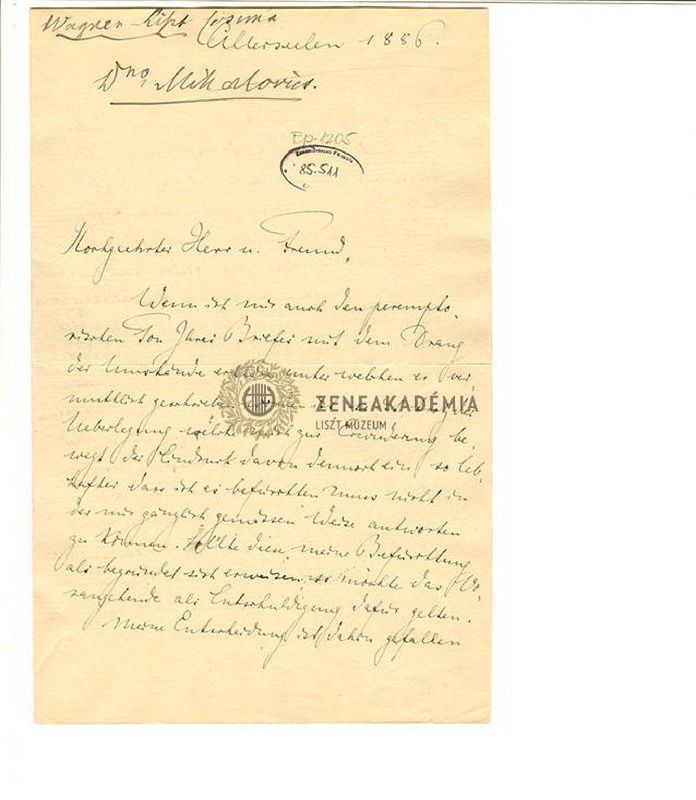 Wagner-Liszt Cosima
Allerseelen 1886.
Dno Mihalovics.
Ep. 1205
85.511
Hochgeehrter Herr u. Freund,
Wenn ich mir auch den perempto-
rischen Ton Ihres Briefes mit dem Drang
der Umstände unter welchen er ver
muthlich geschrieben
ZENEAKADÉMIA
LISZT MÚZEUM
Ueberlegung welche mich zur Erwiderung be
wegt der Eindruck davon dennoch ein so leb
hafter dass ich es befürchten muss nicht in
der mir gänzlich gemässen Weise antworten
zu können. Sollte diese meine Befürchtung
als begründet sich erweisen, so möchte das Vo-
rangehende als Entschuldigung dafür gelten.
Meine Entscheidung ist dahin gefallen